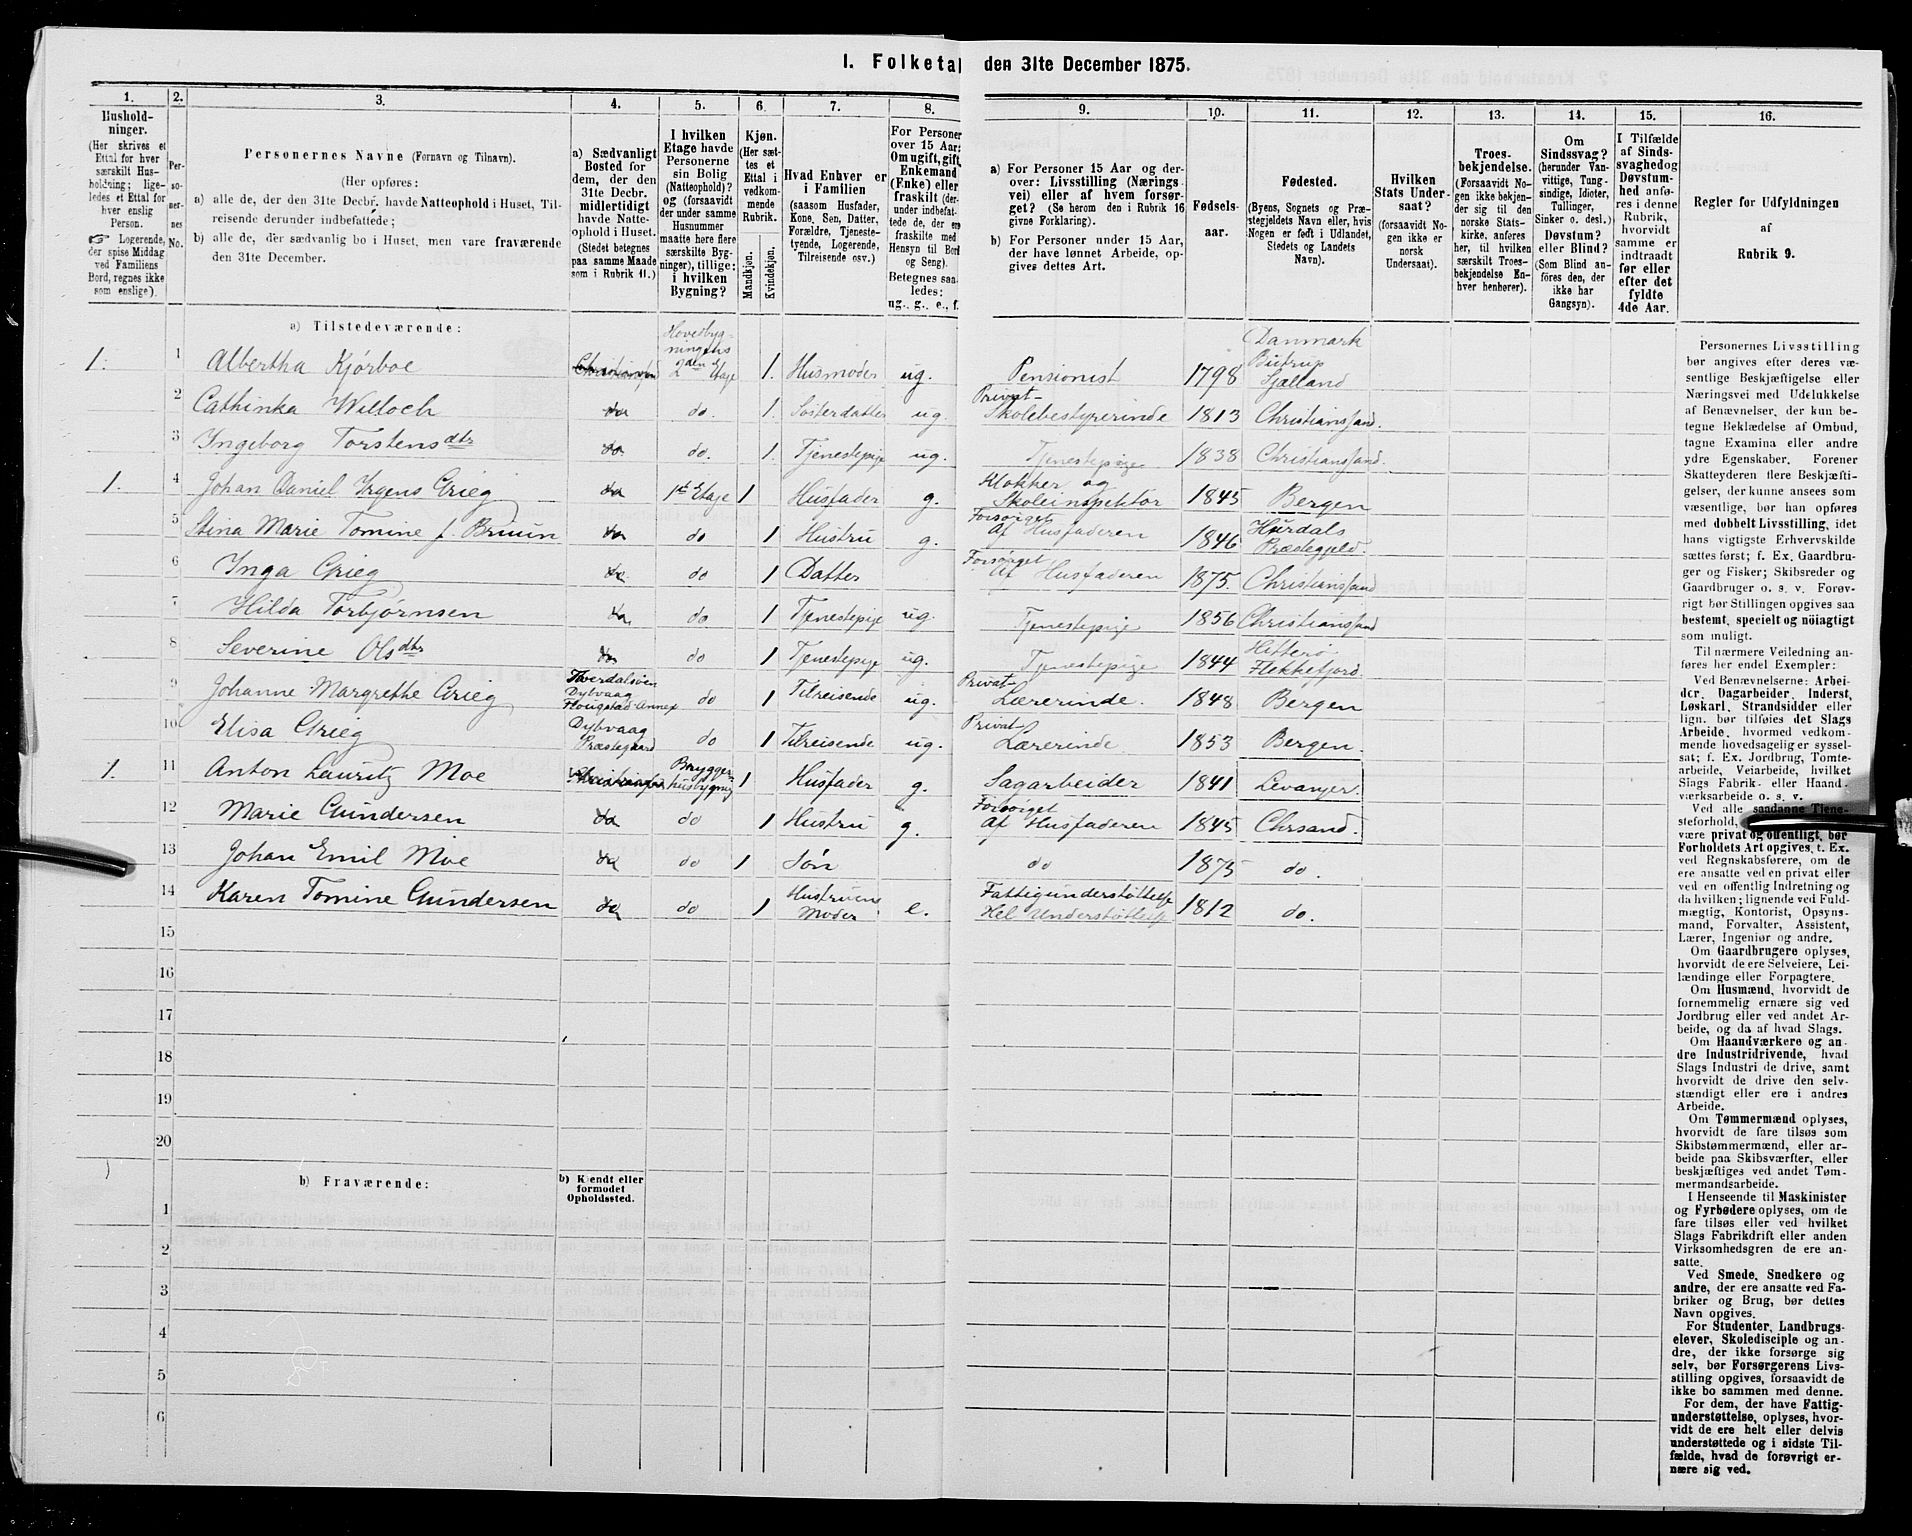 I. Folketal den 31te December 1875.
1. 2. 3. 4. 5. 6. 7. 8. 9. 10. 11. 12. 13. 14. 15. 16.
Hushold-
ninger.
(Her skrives et
Ettal for hver
særskilt Hus-
holdning; lige-
ledes et Ettal for
hver enslig
Person.
☞ Logerende,
der spise Middag
ved Familiens
Bord, regnes ikke
som enslige).
Per-
so-
ner-
nes
No.
Personernes Navne (Fornavn og Tilnavn).
(Her opføres:
a) alle de, der den 31te Decbr. havde Natteophold i Huset, Til-
reisende derunder indbefattede;
b) alle de, der sædvanlig bo i Huset, men vare fraværende
den 31te December.
a) Sædvanligt
Bosted for
dem, der den
31te Decbr.
midlertidigt
havde Natte-
ophold i Huset.
(Stedet betegnes
paa samme Maade
som i Rubrik 11.)
I hvilken
Etage havde
Personerne
sin Bolig
(Natteophold)?
og (forsaavidt
der under samme
Husnummer
maatte høre flere
særskilte Byg-
ninger), tillige:
i hvilken
Bygning?
Kjøn.
(Her sæt-
tes et
Ettal i
vedkom-
mende
Rubrik.
Mandkjøn.
Kvindekjøn.
Hvad Enhver er
i Familien
(saasom Husfader,
Kone, Søn, Datter,
Forældre, Tjeneste-
tyende, Logerende,
Tilreisende osv.)
For Personer
over 15 Aar:
Om ugift, gift,
Enkemand
(Enke) eller
fraskilt (der-
under indbefat-
tede de, der ere
fraskilte med
Hensyn til Bord
og Seng).
Betegnes saa-
ledes:
ug., g., e., f.
a) For Personer 15 Aar og der-
over: Livsstilling (Nærings-
vei) eller af hvem forsør-
get? (Se herom den i Rubrik 16
givne Forklaring).
b) For Personer under 15 Aar,
der have lønnet Arbeide, op-
gives dettes Art.
Fødsels-
aar.
Fødested.
(Byens, Sognets og Præ-
stegjeldets Navn eller, hvis
Nogen er født i Udlandet,
Stedets og Landets
Navn).
Hvilken
Stats Under-
saat?
(forsaavidt No-
gen ikke er
norsk
Undersaat).
Troes-
bekjendelse.
(Forsaavidt No-
gen ikke bekjen-
der sig til den
norske Stats-
kirke, anføres
her, til hvilken
særskilt Troes-
bekjendelse En-
hver henhører).
Om
Sindssvag?
(herunder Van-
vittige, Tung-
sindige, Idioter,
Tullinger,
Sinker o. desl.)
Døvstum?
eller Blind?
(Som Blind an-
føres den, der
ikke har
Gangsyn).
I Tilfælde
af Sinds-
svaghed og
Døvstum-
hed anfø-
res i denne
Rubrik,
hvorvidt
samme er
indtraadt
før eller
efter det
fyldte
4de Aar.
Regler for Udfyldningen
af
Rubrik 9.
a) Tilstedeværende:
1. 1 Albertha Kjørboe Christiansand Hovedbyg-
ningens
2den Etage 1. Husmoder ug. Pensionist 1798 Danmark
Sjælland
2 Cathinka Willoch do do. 1. Søsterdatter ug. Privat-
Skolebestyrerinde 1813 Christianssand.
3 Ingeborg Torstensdtr do do. 1. Tjenestepige ug. Tjenestepige 1838 Christianssand.
1. 4 Johan Daniel Irgens Grieg do 1st Etage 1 Husfader g. Klokker og
Skoleinspektør 1845 Bergen
5 Stina Marie Tomine f. Bruun do do 1 Hustru g. Forsørget
Af Husfaderen 1846 Hurdals
Præstegjeld.
6 Inga Grieg do. do 1 Datter Forsørget
Af Husfaderen 1875. Christianssand
7 Hilda Torbjørnsen do do 1 Tjenestepige ug. Tjenestepige 1856 Christianssand
8 Severine Olsdtr do do 1 Tjenestepige ug. Tjenestepige 1844 Hitterø
Flekkefjord.
9 Johanne Margrethe Grieg Tverdalsøen
Dybvaag
Annex do 1 Tilreisende ug. Privat-
Lærerinde. 1848 Bergen
10 Elisa Grieg Dybvaag
Præstegaard do 1 Tilreisende ug. Privat-
Lærerinde. 1853 Bergen.
1. 11 Anton Lauritz Moe Christianssand Brygger-
husbygnig 1 Husfader g. Sagarbeider 1841 Levanger.
12 Marie Gundersen do do 1 Hustru g. Forsørget
Af Husfaderen 1845 Chrsand.
13 Johan Emil Moe do do 1 Søn do 1875 do.
14 Karen Tomine Gundersen do do 1 Hustruens
Moder e. Fattigunderstøttelse
Hel Understøttelse 1812 do.
15
16
17
18
19
20
b) Fraværende:
b) Kjendt eller
formodet
Opholdssted.
1
2
3
4
5
6
Personernes Livsstilling
bør angives efter deres væ-
sentlige Beskjæftigelse eller
Næringsvei med Udelukkelse
af Benævnelser, der kun be-
tegne Beklædelse af Ombud,
tagne Examina eller andre
ydre Egenskaber. Forener
Skatteyderen flere Beskjæfti-
gelser, der kunne ansees som
væsentlige, bør han opføres
med dobbelt Livsstilling, idet
hans vigtigste Erhvervskilde
sættes først; f. Ex. Gaardbru-
ger og Fisker; Skibsreder og
Gaardbruger o. s. v. Forøv-
rigt bør Stillingen opgives saa
bestemt, specielt og nøiagtigt
som muligt.
Til nærmere Veiledning an-
føres her endel Exempler:
Ved Benævnelserne: Arbei-
der, Dagarbeider, Inderst,
Løskarl, Strandsidder eller
lign. bør tilføies det Slags
Arbeide, hvormed vedkom-
mende hovedsagelig er syssel-
sat; f. Ex. Jordbrug, Tomte-
arbeide, Veiarbeide, hvilket
Slags Fabrik- eller Haand-
værksarbeide o. s. v.
Ved alle saadanne Tjene-
steforhold,
være privat og offentligt, bør
Forholdets Art opgives, t. Ex.
ved Regnskabsførere, om de
ere ansatte ved en privat eller
ved en offentlig Indretning og
da hvilken; lignende ved Fuld-
mægtig, Kontorist, Opsyns-
mand, Forvalter, Assistent,
Lærer, Ingeniør og andre.
Om Gaardbrugere oplyses,
hvorvidt de ere Selveiere, Lei-
lændinge eller Forpagtere.
Om Husmænd, hvorvidt de
fornemmelig ernære sig ved
Jordbrug eller ved andet Ar-
beide, og da af hvad Slags.
Om Haandværkere og an-
dre Industridrivende, hvad
Slags Industri de drive, samt
hvorvidt de drive den selv-
stændigt eller ere i andres
Arbeide.
Om Tømmermænd oplyses,
hvorvidt de fare tilsøs som
Skibstømmermænd, eller ar-
beide paa Skibsværfter, eller
beskjæftiges ved andet Tøm-
mermandsarbeide.
I Henseende til Maskinister
og Fyrbødere oplyses, om de
fare tilsøs eller ved hvilket
Slags Fabrikdrift eller anden
Virksomhedsgren de ere an-
satte.
Ved Smede, Snedkere og
andre, der ere ansatte ved Fa-
briker og Brug, bør dettes
Navn opgives.
For Studenter, Landbrugs-
elever, Skoledisciple og an-
dre, der ikke forsørge sig
selv, bør Forsørgerens Livs-
stilling opgives, forsaavidt de
ikke bo sammen med denne.
For dem, der have Fattig-
understøttelse, oplyses, hvor-
vidt de ere helt eller delvis
understøttede og i sidste Til-
fælde, hvad de forøvrigt er-
nære sig ved.